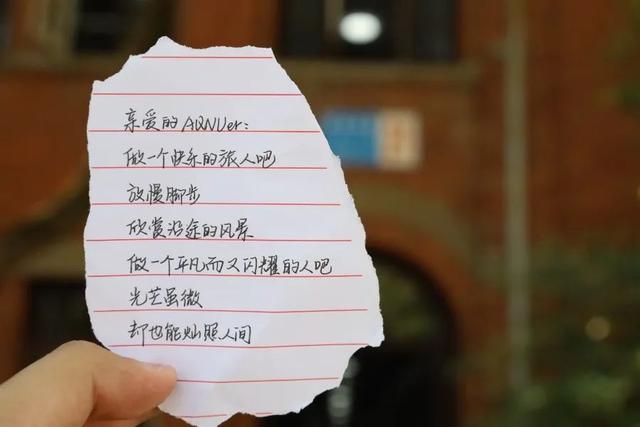 亲爱的AQNUer:
做一个快乐的旅人吧
放慢脚步
欣赏沿途的风景
做一个平凡而又闪耀的人吧
光芒虽微
却也能灿照人间